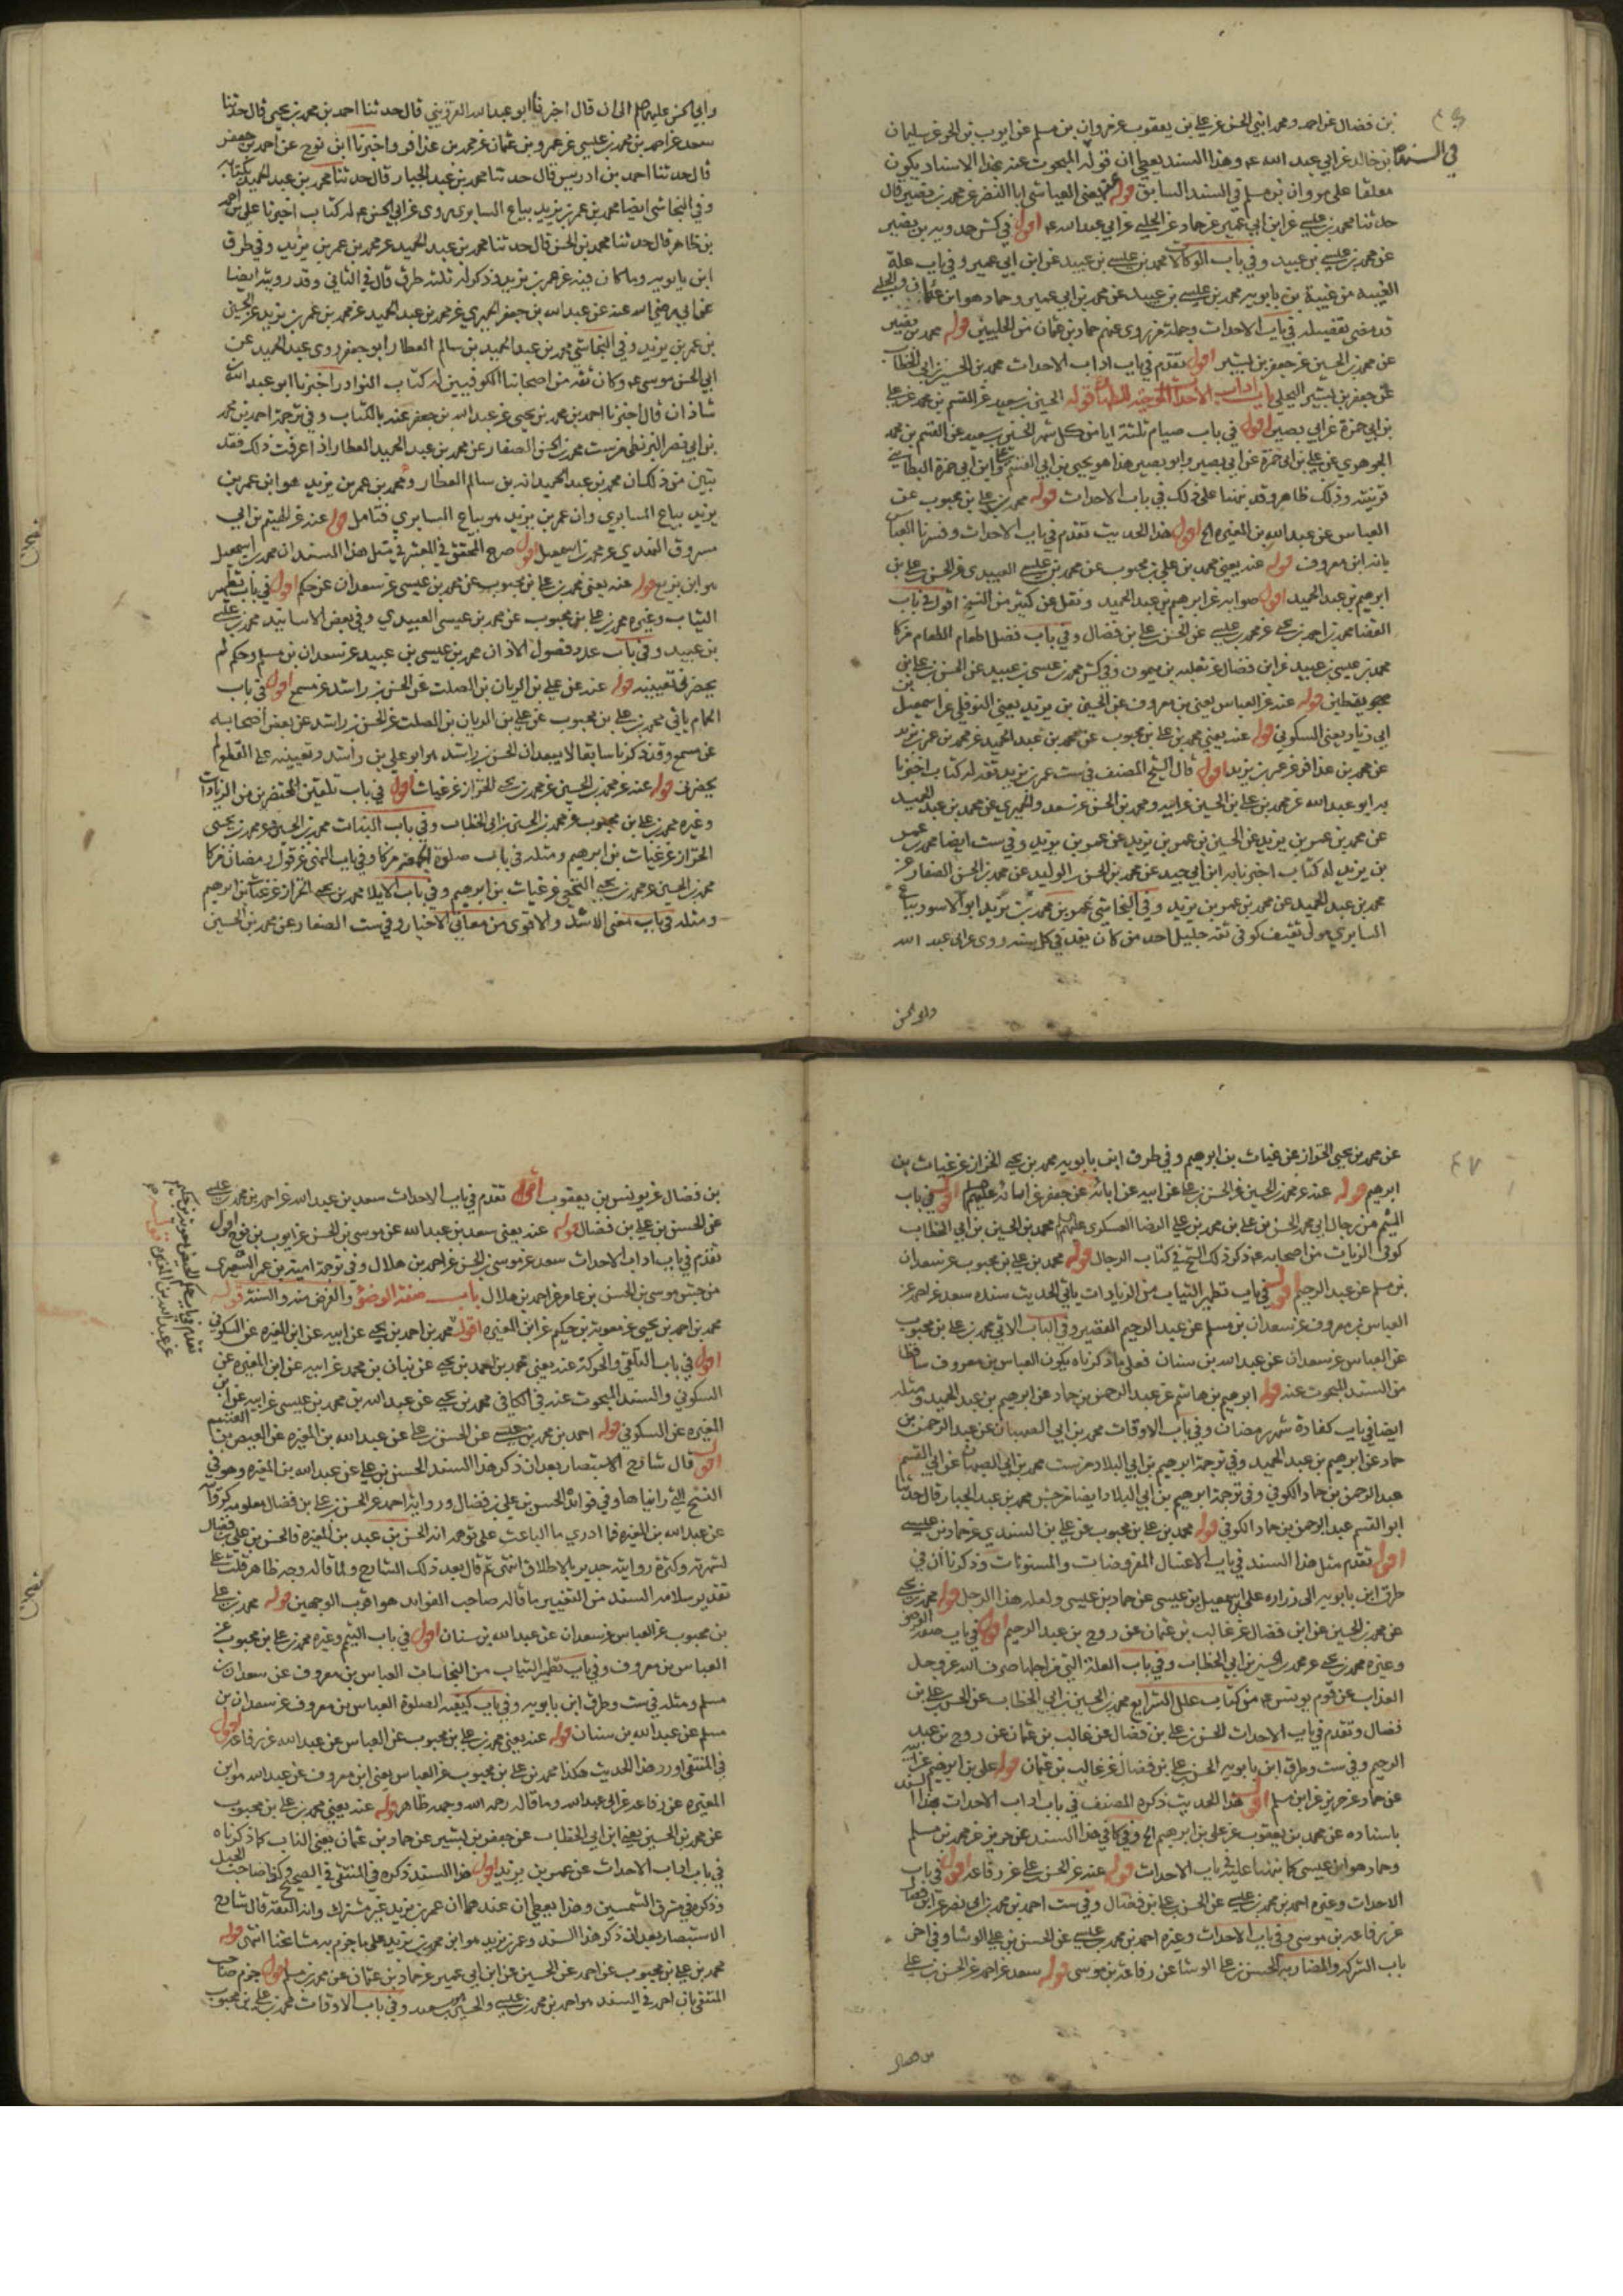 بن فضال عن احمد ومحمد ابني الحسن عن علي بن يعقوب عن مروان بن مسلم عن ايوب بن الحر عن سليمان
بن خالد عن ابي عبد الله وهذا السند يعطي ان قوله المبحوث عنه بهذا الاسناد يكون
معلقا على مروان بن مسلم في السند السابق قوله يعني العياشي ابا النضر عن محمد بن نصير قال
حدثنا محمد بن عيسى عن ابن ابي عمير عن حماد عن الحلبي عن ابي عبد الله اقول في كش حمدويه بن نصير
عن محمد بن عيسى بن عبيد وفي باب الوكالات محمد بن عيسى بن عبيد عن ابن ابي عمير وفي باب علة
الغيبة من غيبة بن بابويه محمد بن عيسى بن عبيد عن محمد بن ابي عمير وحماد هو ابن عثمان
قد مضى تفصيله في باب الاحداث وجملة من روى عنهم حماد بن عثمان من الحلبيين قوله محمد بن
عن محمد بن الحسين عن جعفر بن بشير اقول تقدم في باب اداب الاحداث محمد بن الحسين بن ابي الخطاب
عن جعفر بن بشير البجلي باب اداب الاحداث الموجبة للطهارة قوله الحسين بن سعيد عن القسم بن محمد عن علي
بن ابي حمزة عن ابي بصير اقول في باب صيام ثلثة ايام من كل شهر الحسين بن سعيد عن القسم بن محمد
الجوهري عن علي بن ابي حمزة عن ابي بصير وابو بصير هذا هو يحيى بن ابي القسم وابن ابي حمزة البطائني
قرينته وذلك ظاهر وقد نبهنا على ذلك في باب الاحداث قوله محمد بن علي بن محبوب عن
العباس عن عبد الله بن المغيرة الخ اقول هذا الحديث تقدم في باب الاحداث وفسرنا العباس
بانه ابن معروف قوله عنه يعني محمد بن علي بن محبوب عن محمد بن عيسى العبيدي عن الحسن بن علي بن
ابرهيم بن عبد الحميد اقول صوابه عن ابرهيم بن عبد الحميد ونقل عن كثير من النسخ
محمد بن عيسى بن عبيد عن ابن فضال عن ثعلبة بن ميمون وفي كش محمد بن عيسى بن عبيد عن الحسن بن علي بن
يقطين قوله عنه عن العباس يعني بن معروف عن الحسين بن يزيد يعني النوفلي عن اسمعيل
ابي زياد يعني السكوني قوله عنه يعني محمد بن علي بن محبوب عن محمد بن عبد الحميد عن محمد بن عمر بن يزيد
عن محمد بن عذافر عن عمر بن يزيد اقول قال الشيخ المصنف في ست عمر بن يزيد ثقة له كتاب اخبرنا
به ابو عبد الله عن محمد بن علي بن الحسين عن ابيه ومحمد بن الحسن عن سعد والحميري عن محمد بن عبد الحميد
عن محمد بن عمر بن يزيد عن الحسين بن عمر بن يزيد عن عمر بن يزيد وفي ست ايضا محمد بن عمر
بن يزيد له كتاب اخبرنا به ابن ابي جيد عن محمد بن الحسن بن الوليد عن محمد بن الحسن الصفار عن
محمد بن عبد الحميد عن محمد بن عمر بن يزيد وفي النجاشي عمر بن محمد بن يزيد ابو الاسود بياع
السابري مولى ثقيف كوفي ثقة جليل احد من كان يفد في كل سنة روى عن ابي عبد الله
وابي الحسن
وابي الحسن عليهما الى ان قال اخبرنا ابو عبد الله القزويني قال حدثنا احمد بن محمد بن يحيى قال حدثنا
سعد عن احمد بن محمد بن عيسى عن عمرو بن عثمان عن محمد بن عذافر واخبرنا ابن نوح عن احمد بن جعفر
قال حدثنا احمد بن ادريس قال حدثنا محمد بن عبد الجبار قال حدثنا محمد بن عبد الحميد بكتابه
وفي النجاشي ايضا محمد بن عمر بن يزيد بياع السابري روى عن ابي الحسن له كتاب اخبرنا علي بن احمد
بن طاهر قال حدثنا محمد بن الحسن قال حدثنا محمد بن عبد الحميد عن محمد بن عمر بن يزيد وفي طرق
ابن بابويه وما كان فيه عن عمر بن يزيد فذكر له ثلثة طرق قال في الثاني وقد رويته ايضا
عن ابي رضي الله عنه عن عبد الله بن جعفر الحميري عن محمد بن عبد الحميد عن محمد بن عمر بن يزيد عن الحسين
بن عمر بن يزيد وفي النجاشي محمد بن عبد الحميد بن سالم العطار ابو جعفر روى عبد الحميد عن
ابي الحسن موسى وكان ثقة من اصحابنا الكوفيين له كتاب النوادر اخبرنا ابو عبد الله
شاذان قال اخبرنا احمد بن محمد بن يحيى عن عبد الله بن جعفر عنه بالكتاب وفي ترجمة احمد بن محمد
بن ابي نصر البزنطي من ست محمد بن الحسن الصفار عن محمد بن عبد الحميد العطار اذا عرفت ذلك فقد
تبين من ذلك ان محمد بن عبد الحميد انه بن سالم العطار ومحمد بن عمر بن يزيد هو ابن عمر بن
يزيد بياع السابري وان عمر بن يزيد هو بياع السابري فتامل قوله عنه عن الهيثم بن ابي
مسروق النهدي عن محمد بن اسمعيل اقول صرح المحقق في المعتبر في مثل هذا السند ان محمد بن اسمعيل
هو ابن بزيع قوله عنه يعني محمد بن علي بن محبوب عن محمد بن عيسى عن سعدان عن حكم اقول في باب تطهير
الثياب وغيره محمد بن علي بن محبوب عن محمد بن عيسى العبيدي وفي بعض الاسانيد محمد بن عيسى
بن عبيد وفي باب عدد فصول الاذان محمد بن عيسى بن عبيد عن سعدان بن مسلم وحكم لم
يحضرني تعيينه قوله عنه عن علي بن الريان بن الصلت عن الحسن بن راشد عن مسمع اقول في باب
ياتي محمد بن علي بن محبوب عن علي بن الريان بن الصلت عن الحسن بن راشد عن بعض اصحابه
عن مسمع وقد ذكرنا سابقا لا يبعد ان الحسن بن راشد هو ابو علي بن راشد وتعيينه على القطع لم
يحضرني قوله عنه عن محمد بن الحسين عن محمد بن يحيى الخزاز عن غياث اقول في باب تلقين المحتضرين من الزيادات
وغيره محمد بن علي بن محبوب عن محمد بن الحسين بن ابي الخطاب وفي باب البينات محمد بن الحسين عن محمد بن يحيى
الخزاز عن غياث بن ابرهيم ومثله في باب صلوة
محمد بن الحسين عن محمد بن يحيى الخثعمي عن غياث بن ابرهيم وفي باب الايلاء محمد بن يحيى الخزاز عن غياث بن ابرهيم
ومثله في باب معنى الاشد والاقوى من معاني الاخبار وفي ست الصفار عن محمد بن الحسين
عن محمد بن يحيى الخزاز عن غياث بن ابرهيم وفي طرق ابن بابويه محمد بن يحيى الخزاز عن غياث بن
ابرهيم قوله عنه عن محمد بن الحسين عن الحسن بن علي عن ابيه عن ابائه عن جعفر عن ابائه عليهم اقول في باب
التيمم من رجال ابي محمد الحسن بن علي بن محمد بن علي الرضا العسكري عليهم محمد بن الحسين بن ابي الخطاب
كوفي الزيات من اصحابه ذكر ذلك الشيخ في كتاب الرجال قوله محمد بن علي بن محبوب عن سعدان
بن مسلم عن عبد الرحيم اقول في باب تطهير الثياب من الزيادات ياتي الحديث سنده سعد عن احمد عن
العباس بن معروف عن سعدان بن مسلم عن عبد الرحيم القصير وفي الباب الاتي محمد بن علي بن محبوب
عن العباس عن سعدان عن عبد الله بن سنان فعلى ما ذكرناه يكون العباس بن معروف ساقطا
من السند المبحوث عنه قوله ابرهيم بن هاشم عن عبد الرحمن بن حماد عن ابرهيم بن عبد الحميد ومثله
ايضا في باب كفارة شهر رمضان وفي باب الاوقات محمد بن ابي الصهبان عن عبد الرحمن بن
حماد عن ابرهيم بن عبد الحميد وفي ترجمة ابرهيم بن ابي البلاد من ست محمد بن ابي الصهبان عن ابي القسم
عبد الرحمن بن حماد الكوفي وفي ترجمة ابرهيم بن ابي البلاد ايضا من جش محمد بن عبد الجبار قال حدثنا
ابو القسم عبد الرحمن بن حماد الكوفي قوله محمد بن علي بن محبوب عن علي بن السندي عن حماد بن عيسى
اقول تقدم مثل هذا السند في باب الاغسال المفروضات والمسنونات وذكرنا ان في
طرق ابن بابويه الى زرارة علي بن اسمعيل بن عيسى عن حماد بن عيسى ولعله هذا الرجل قوله محمد بن يحيى
عن محمد بن الحسين عن ابن فضال عن غالب بن عثمان عن روح بن عبد الرحيم اقول في باب صفة الوضوء
وغيره محمد بن يحيى عن محمد بن الحسين بن ابي الخطاب وفي باب العلة التي من اجلها صرف الله عز وجل
العذاب عن قوم يونس من كتاب علل الشرايع محمد بن الحسين بن ابي الخطاب عن الحسن بن علي بن
فضال وتقدم في باب الاحداث الحسن بن علي بن فضال عن غالب بن عثمان عن روح بن عبد
الرحيم وفي ست وطرق ابن بابويه الحسن بن علي بن فضال عن غالب بن عثمان قوله علي بن ابرهيم عن ابيه
عن حماد عن حريز عن ابن مسلم اقول هذا الحديث ذكره المصنف في باب اداب الاحداث بهذا السند
باسناده عن محمد بن يعقوب عن علي بن ابرهيم الخ وفي كافي هذا السند عن حريز عن محمد بن مسلم
وحماد هو ابن عيسى كما نبهنا عليه في باب الاحداث قوله عنه عن الحسن بن علي عن رفاعة اقول في باب
الاحداث وغيره احمد بن محمد بن عيسى عن الحسن بن علي بن فضال وفي ست احمد بن محمد بن ابي نصر عن ابن فضال
عن رفاعة بن موسى وفي باب الاحداث وغيره احمد بن محمد بن عيسى عن الحسن بن علي الوشا وفي اخر
باب الشركة والمضاربة الحسن بن علي الوشا عن رفاعة بن موسى قوله سعد عن احمد عن الحسن بن علي
بن فضال
بن فضال عن يونس بن يعقوب اقول تقدم في باب الاحداث سعد بن عبد الله عن احمد بن محمد بن عيسى
عن الحسن بن علي بن فضال قوله عنه يعني سعد بن عبد الله عن موسى بن الحسن عن ايوب بن نوح اقول
تقدم في باب اداب الاحداث سعد عن موسى بن الحسن عن احمد بن هلال وفي ترجمة امية بن عمر الشعيري
من جش موسى بن الحسن بن عامر عن احمد بن هلال باب صفة الوضوء والفرض منه والسنة قوله
محمد بن احمد بن يحيى عن معوية بن حكيم عن ابن المغيرة اقول محمد بن احمد بن يحيى عن ابيه عن ابن المغيرة عن السكوني
اقول في باب عنه يعني محمد بن احمد بن يحيى عن بنان بن محمد عن ابيه عن ابن المغيرة عن
السكوني والسند المبحوث عنه في الكافي محمد بن يحيى عن عبد الله بن محمد بن عيسى عن ابيه عن ابن
المغيرة عن السكوني قوله احمد بن محمد بن عيسى عن الحسن بن علي عن عبد الله بن المغيرة عن العيص بن القسم
اقول قال شارح الاستبصار بعد ان ذكر هذا السند الحسن بن علي عن عبد الله بن المغيرة وهو في
النسخ التي رايناها وفي فوائد الحسن بن علي بن فضال ورواية احمد عن الحسن بن علي بن فضال معلومة
عن عبد الله بن المغيرة فما ادري ما الباعث على توهم انه الحسن بن علي بن عبد الله بن المغيرة فالحسن بن علي بن فضال
لشهرته وكثرة روايته جدير بالاطلاق انتهى ثم قال بعد ذلك الشارح ولما قاله وجه ظاهر قلت على
تقدير سلامة السند من التغيير ما قاله صاحب الفوايد هو اقرب الوجهين قوله محمد بن علي
بن محبوب عن العباس عن سعدان عن عبد الله بن سنان اقول في باب التيمم وغيره محمد بن علي بن محبوب عن
العباس بن معروف وفي باب تطهير الثياب من النجاسات العباس بن معروف عن سعدان بن
مسلم ومثله في ست وطرق ابن بابويه وفي باب كيفية الصلوة العباس بن معروف عن سعدان بن
مسلم عن عبد الله بن سنان قوله عنه يعني محمد بن علي بن محبوب عن العباس عن عبد الله عن رفاعة اقول
في المنتقى اورد هذا الحديث هكذا محمد بن علي بن محبوب عن العباس يعني ابن معروف عن عبد الله هو ابن
المغيرة عن رفاعة عن ابي عبد الله وما قاله رحمه الله وجهه ظاهر قوله عنه يعني محمد بن علي بن محبوب
عن محمد بن الحسين يعني ابن ابي الخطاب عن جعفر بن بشير عن حماد بن عثمان يعني الناب كما ذكرناه
في باب اداب الاحداث عن عمر بن يزيد اقول هذا السند ذكره في المنتقى في الصحيح وكذا صاحب الحبل
وذكره في مشرق الشمسين وهذا يعطي ان عندهما ان عمر بن يزيد غير مشترك وانه الثقة قال شارح
الاستبصار بعد ان ذكر هذا السند وعمر بن يزيد هو ابن محمد بن يزيد على ما جزم به مشايخنا انتهى قوله
محمد بن علي بن محبوب عن احمد عن الحسين عن ابن ابي عمير عن حماد بن عثمان عن محمد بن مسلم اقول جزم صاحب
المنتقى بان احمد في السند هو احمد بن محمد بن عيسى والحسين هو بن سعيد وفي باب الاوقات محمد بن علي بن محبوب